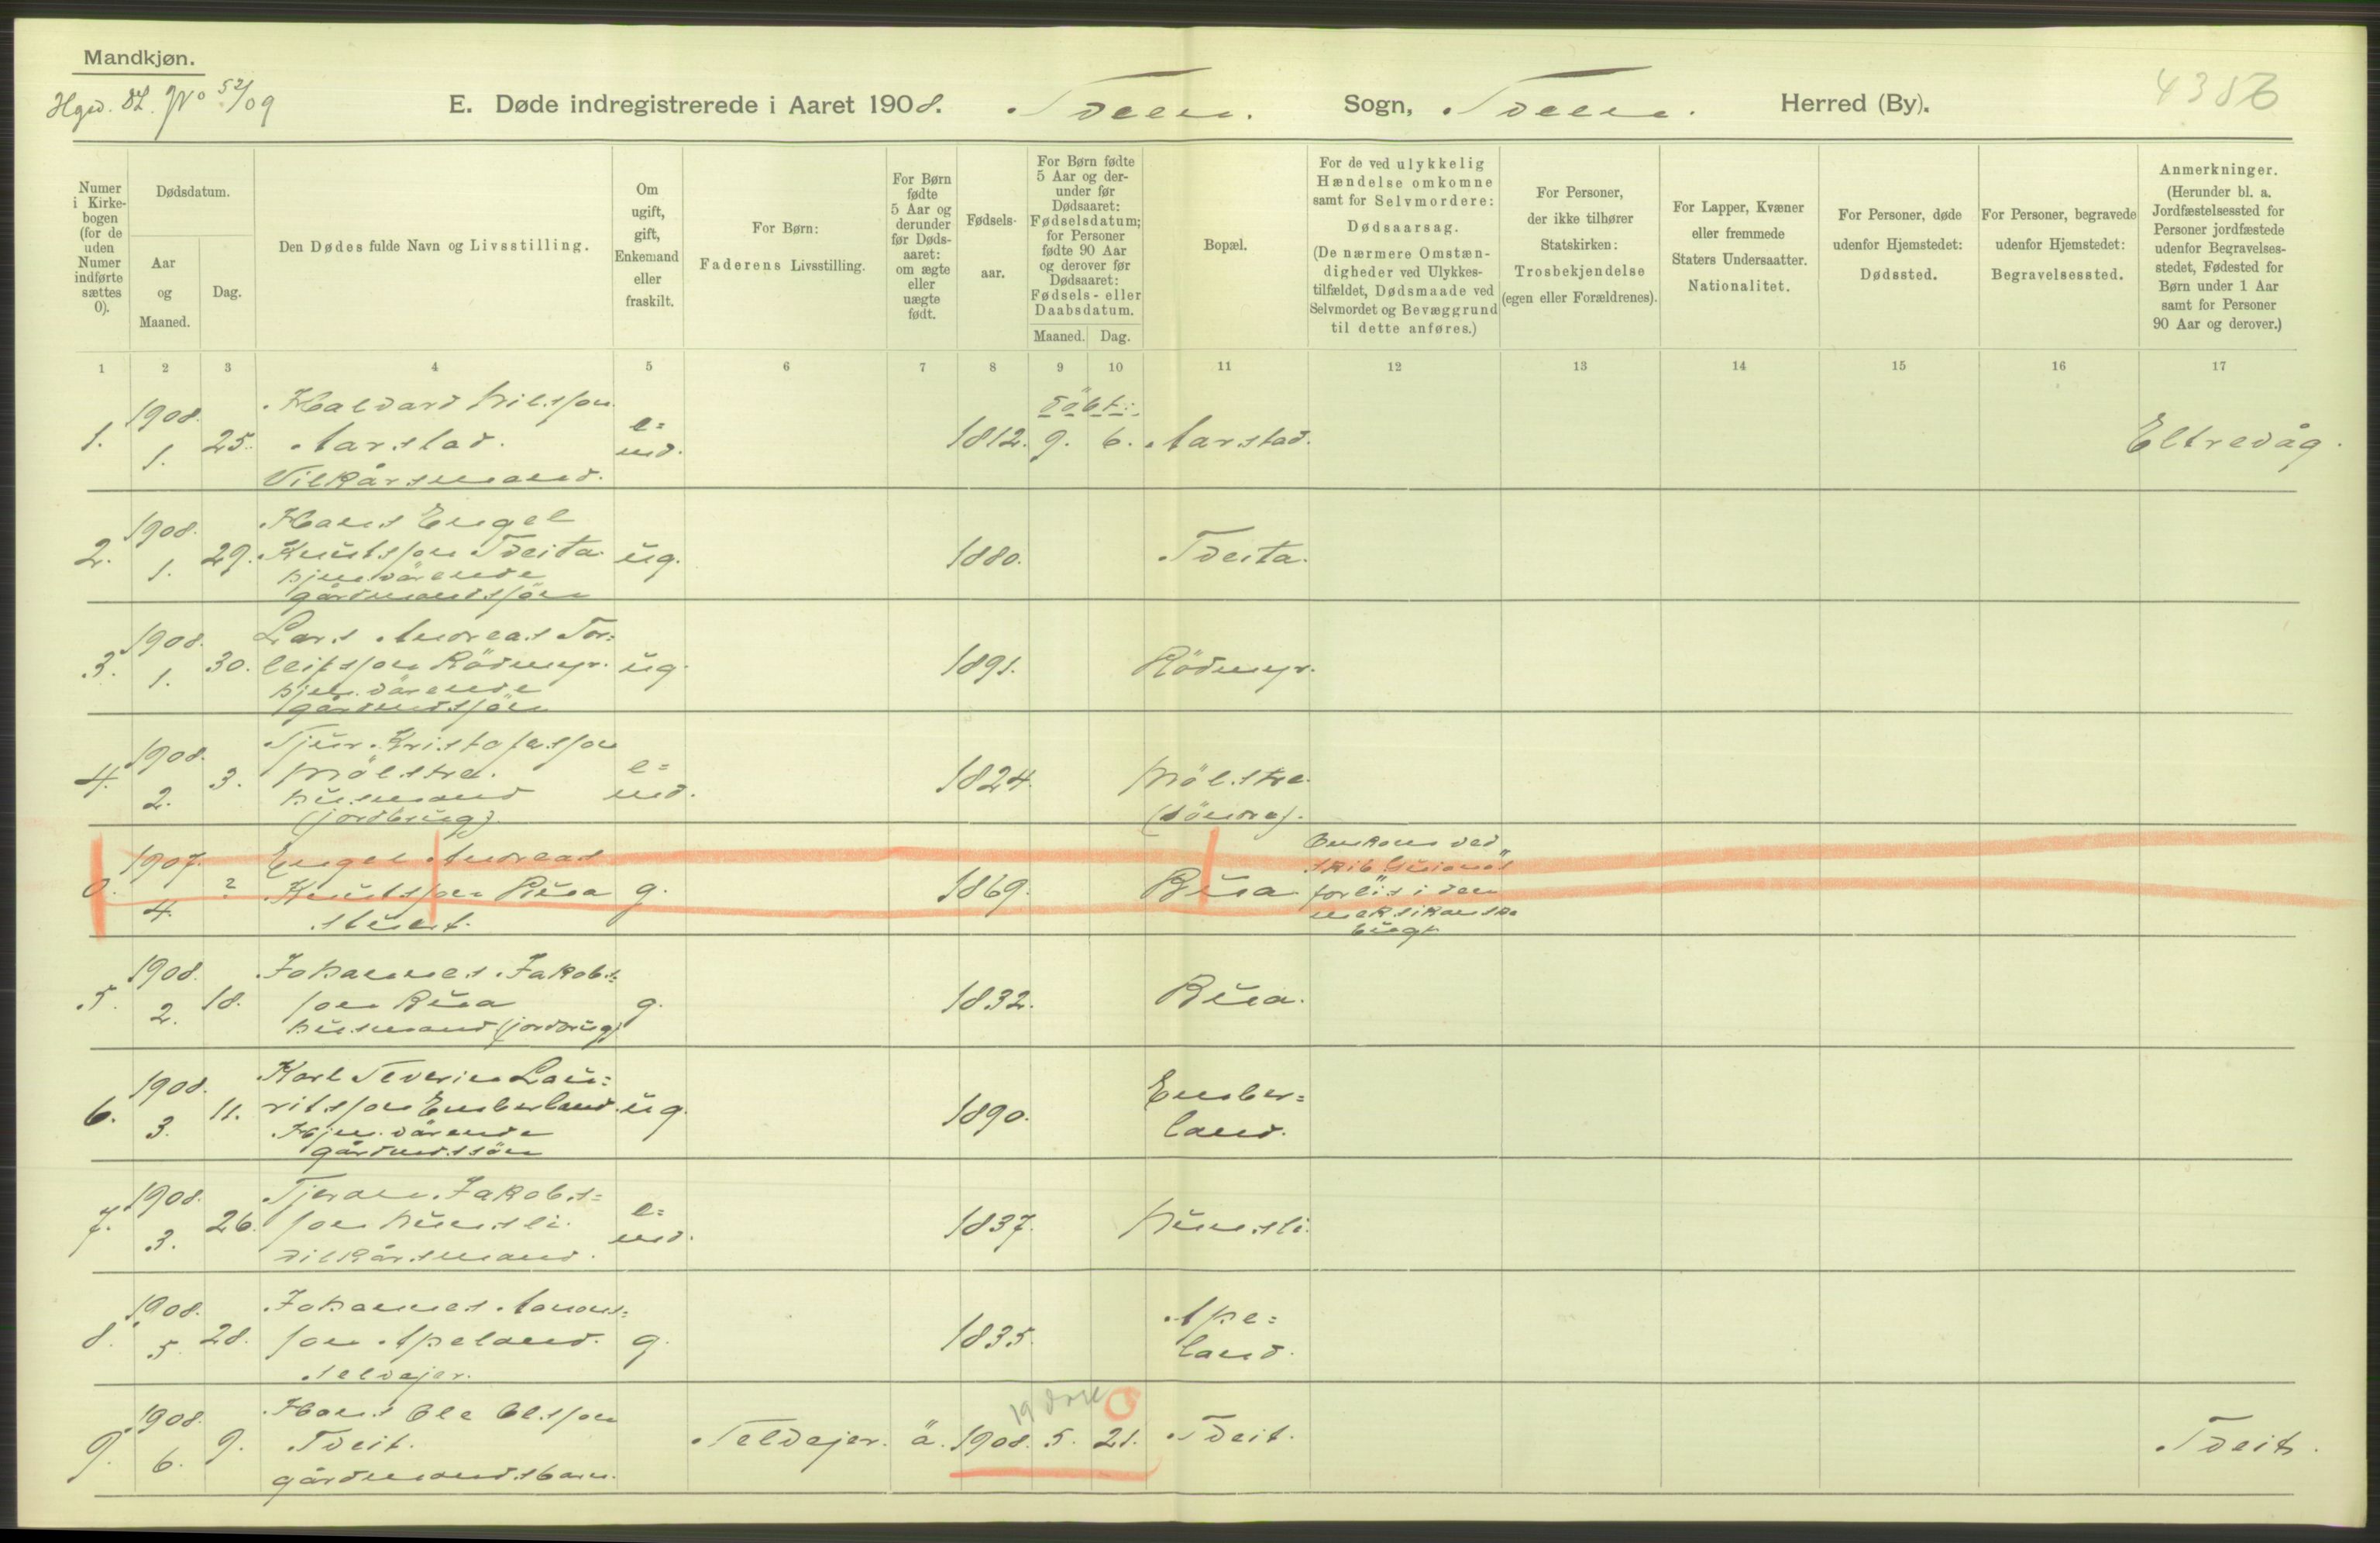 Mandkjøn.
No 52/09
E. Døde indregistrerede i Aaret 1908. Tveen. Sogn, Tveen. Herred (By).
Numer i Kirkebogen (for de uden Numer indførte sættes 0).
Dødsdatum.
Aar og Maaned.
Dag.
Den Dødes fulde Navn og Livsstilling.
Om ugift, gift, Enkemand eller fraskilt.
For Børn:
Faderens Livsstilling.
For Børn fødte 5 Aar og derunder før Døds-aaret: om ægte eller uægte født.
Fødsels-aar.
For Børn fødte 5 Aar og der-under før Dødsaaret: Fødselsdatum; for Personer fødte 90 Aar og derover før Dødsaaret: Fødsels- eller Daabsdatum.
Maaned. Dag.
Bopæl.
For de ved ulykkelig Hændelse omkomne samt for Selvmordere:
Dødsaarsag.
(De nærmere Omstæn-digheder ved Ulykkes-tilfældet, Dødsmaade ved Selvmordet og Bevæggrund til dette anføres.)
For Personer, der ikke tilhører Statskirken:
Trosbekjendelse
(egen eller Forældrenes).
For Lapper, Kvæner eller fremmede Staters Undersaatter.
Nationalitet.
For Personer, døde udenfor Hjemstedet:
Dødssted.
For Personer, begravede udenfor Hjemstedet:
Begravelsessted.
Anmerkninger.
(Herunder bl. a. Jordfæstelsessted for Personer jordfæstede udenfor Begravelses-stedet, Fødested for Børn under 1 Aar samt for Personer 90 Aar og derover.)
1 2 3 4 5 6 7 8 9 10 11 12 13 14 15 16 17
1908. Halvard Nilsson döbt:
1. 1. 25. Aarstad. e=md. 1812. 9. 6. Aarstad. Eltrevåg.
Vilkårsmand.
1908. Hans Engel
2. 1. 29. Knutsson Tveita ug. 1880. Tveita.
hjemværende
gårdmandssön
1908. Lars Andreas Tor=
3. 1. 30. leifsson Rödmyr. ug. 1891. Rödmyr.
hjem.værende
gårdmdssön
1908. Kristofersson
4. 2. 3. Mölstre. e=md. 1824. Mölstre.
husmand
(jordbrug) (söndre).
1907. Engel Andreas Omkom ved
0. 4. ? Knutsson Bua g. 1869. Bua. skib
stuert. forlis i den
meksikanske
bugt
1908. Johannes Jakobs=
5. 2. 18. son Bua g. 1832. Bua.
husmand (jordbrug)
1908. Karl Severin Lau=
6. 3. 11. ritsson Emberland. ug. 1890. Ember=
Hjem.værende land.
gårdmdssön
1908. Jakobs=
7. 3. 26. son Hunsli. e=md. 1837. Hunsli.
vilkårsmand.
1908. Johannes Aamons=
8. 5. 28. son Apeland. g. 1835. Ape=
land.
selvejer.
1908. Hans Ole Olsson
9. 6. 9. Tveit. Selvejer. ä. 1908. 5. 21. Tveit. Tveit.
gårdmandsbarn.